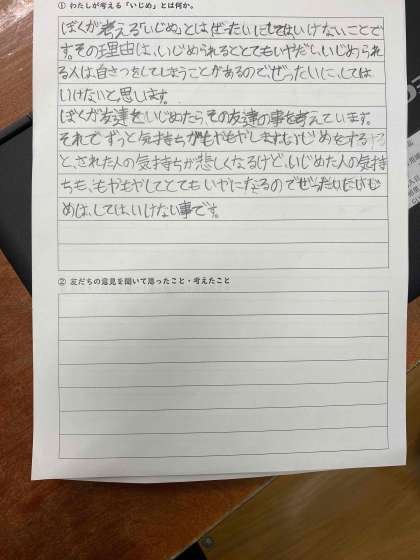 ① わたしが考える「いじめ」とは何か。
ぼくが考える「いじめ」とは、ぜったいにしてはいけないことで
す。その理由は、いじめられるととてもいやだし、いじめられ
る人は自さつをしてしまうことがあるのでぜったいに、しては
いけないと思います。
ぼくが友達をいじめたら、その友達の事を考えています。
それでずっと気持ちがもやもやします。いじめをする
と、された人の気持ちが悲しくなるけど、いじめた人の気持
ちも、もやもやしてとてもいやになるのでぜったいにいじ
めは、してはいけない事です。
② 友だちの意見を聞いて思ったこと・考えたこと